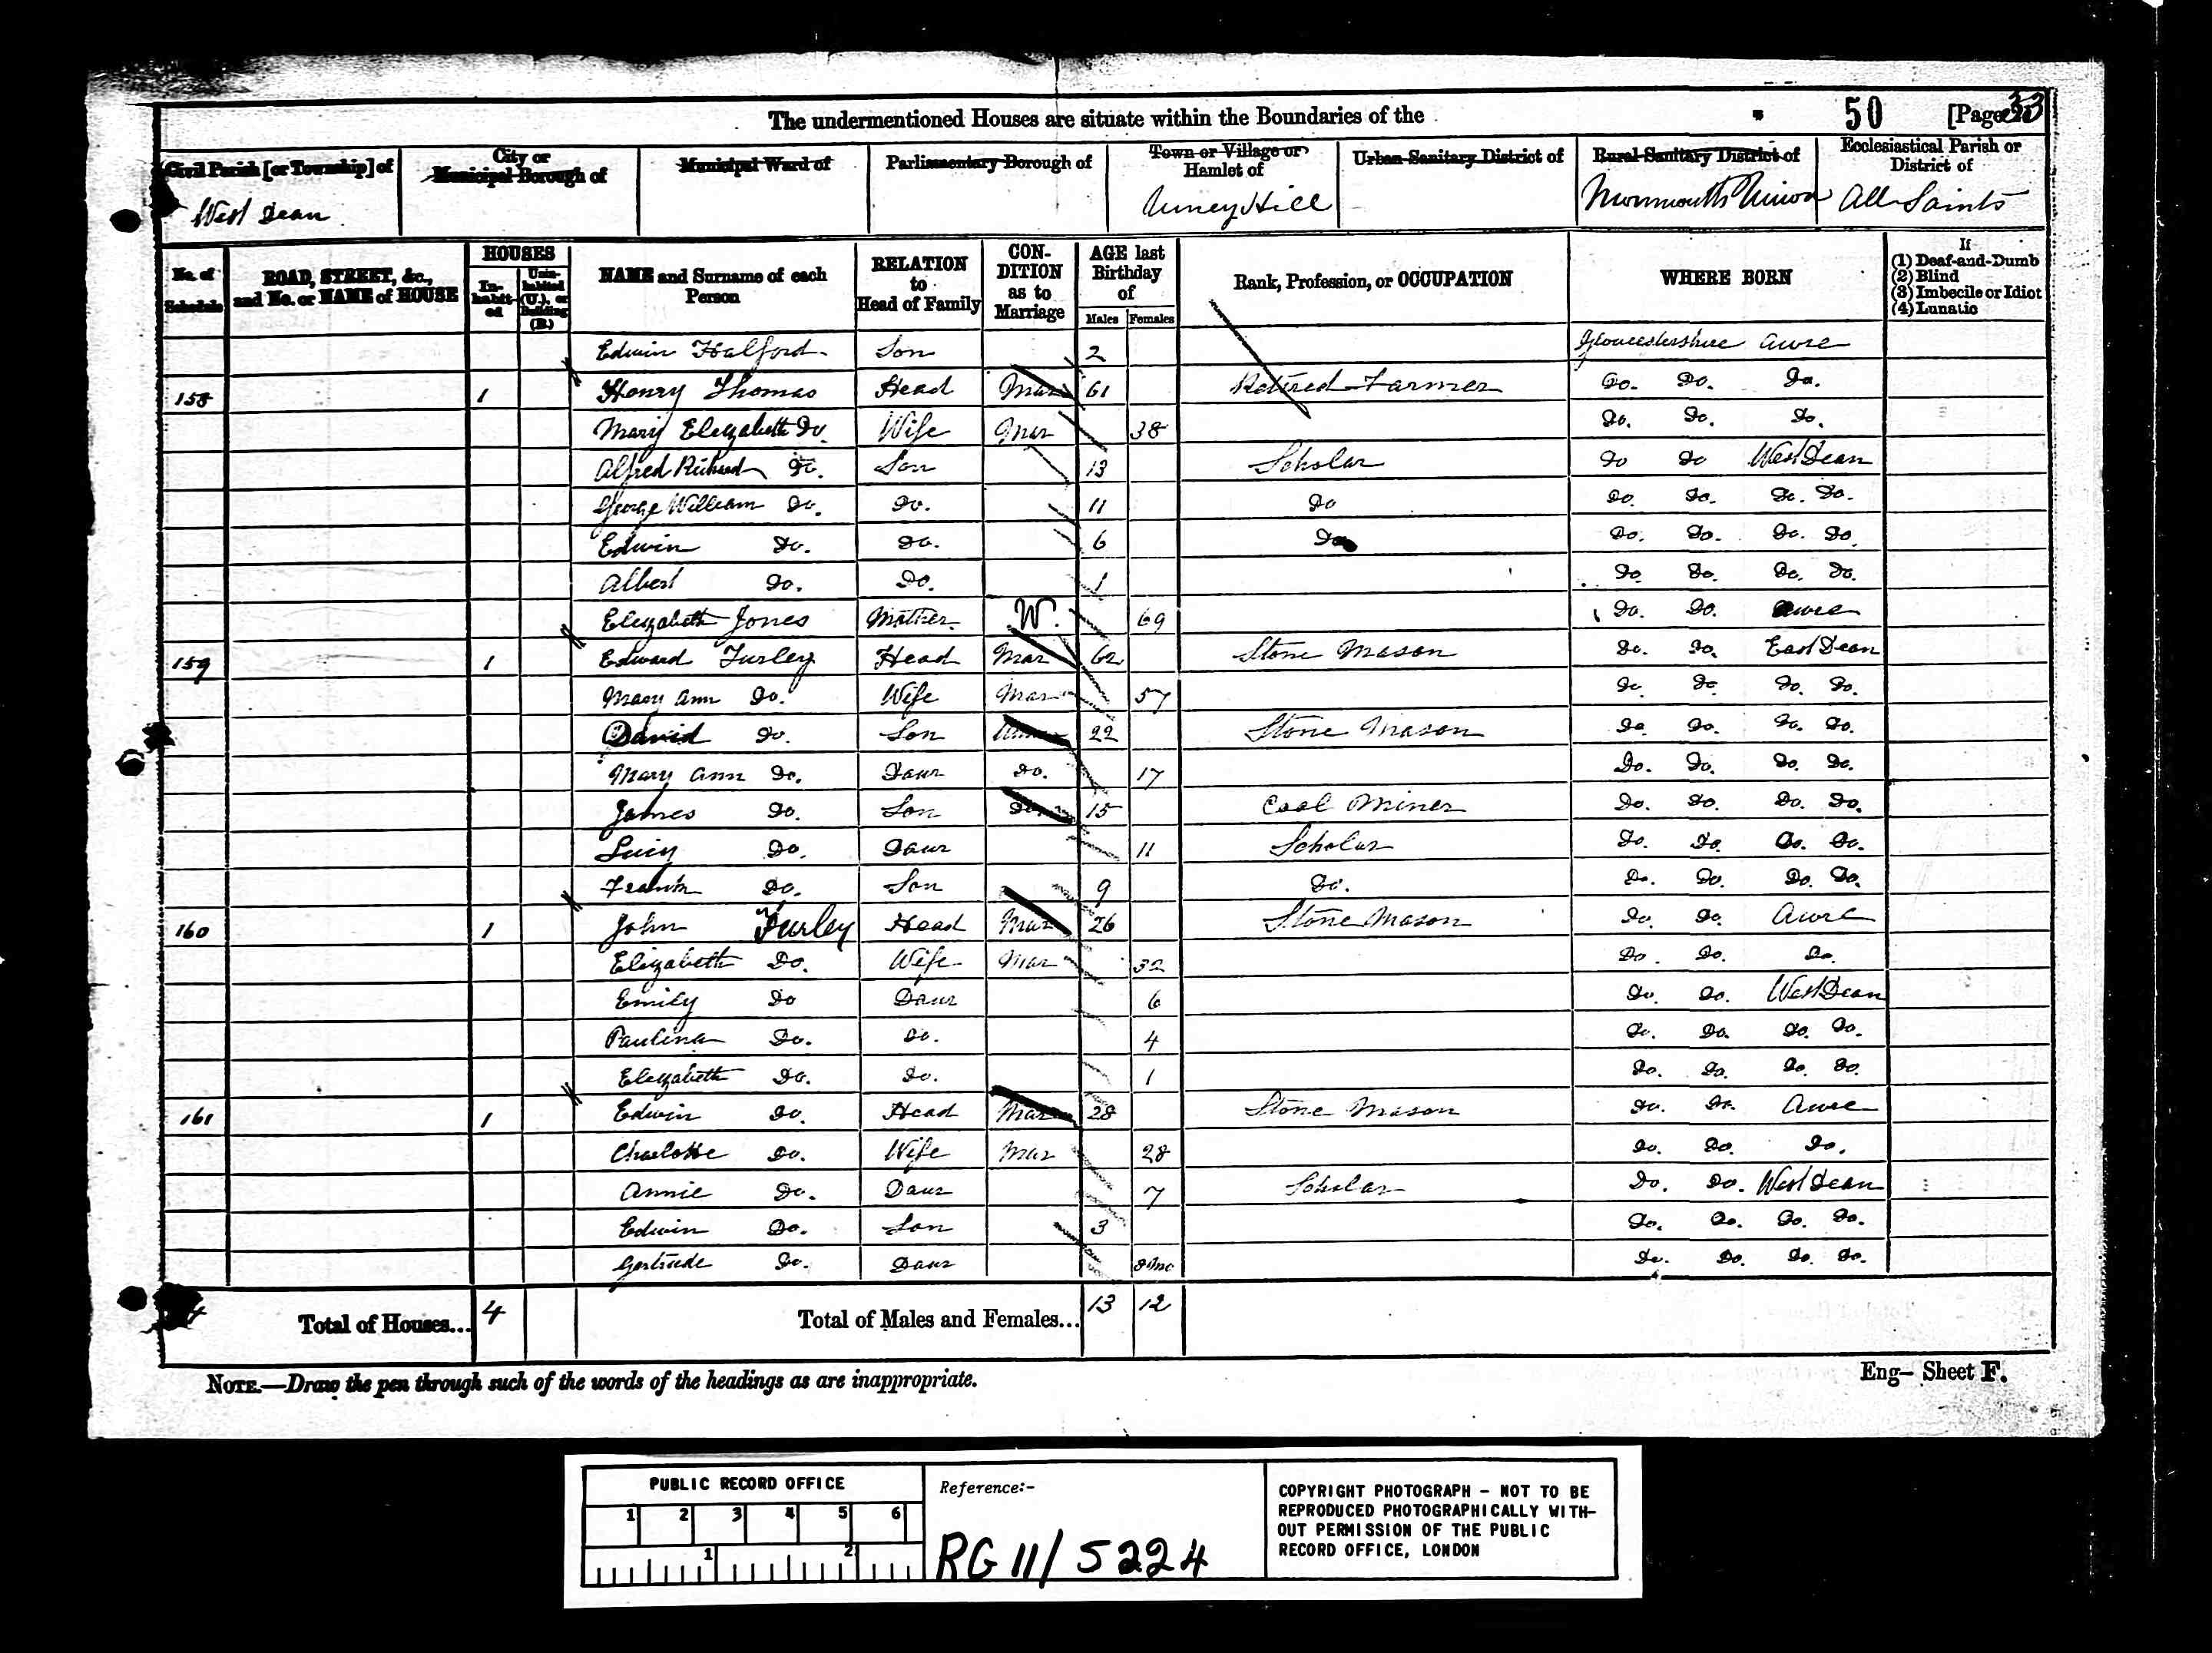 The undermentioned Houses are situate within the Boundaries of the
50 [Page 33
Civil Parish [or Township] of
West Dean
City or Municipal Borough of
Municipal Ward of
Parliamentary Borough of
Town or Village or Hamlet of
Hill
Urban Sanitary District of
Rural Sanitary District of
Monmouth Union
Ecclesiastical Parish or District of
All Saints
No. of Schedule
ROAD, STREET, &c., and No. or NAME of HOUSE
HOUSES
In-habit-ed
Unin-habited (U.), or Building (B.)
NAME and Surname of each Person
RELATION to Head of Family
CON-DITION as to Marriage
AGE last Birthday of
Males Females
Rank, Profession, or OCCUPATION
WHERE BORN
If
(1) Deaf-and-Dumb
(2) Blind
(3) Imbecile or Idiot
(4) Lunatic
Edwin Halford Son 2 Gloucestershire Awre
158 1 Henry Thomas Head Mar 61 Retired Farmer Do. Do. Do.
Mary Elezabeth Do. Wife Mar 38 Do. Do. Do.
Alfred Richard Do. Son 13 Scholar Do Do West Dean
George William Do. Do. 11 Do Do. Do. Do. Do.
Edwin Do. Do. 6 Do Do. Do. Do. Do.
Albert Do. Do. 1 Do. Do. Do. Do.
Elezabeth Jones Mother W. 69 Do. Do. Awre
159 1 Edward Furley Head Mar 62 Stone Mason Do. Do. East Dean
Mary Ann Do. Wife Mar 57 Do. Do. Do. Do.
David Do. Son 22 Stone Mason Do. Do. Do. Do.
Mary Ann Do. Daur Do. 17 Do. Do. Do. Do.
James Do. Son Do. 15 Coal Miner Do. Do. Do. Do.
Lucy Do. Daur 11 Scholar Do. Do. Do. Do.
Do. Son 9 Do. Do. Do. Do. Do.
160 1 John Furley Head Mar 26 Stone Mason Do. Do. Awre
Elizabeth Do. Wife Mar 32 Do. Do. Do.
Emily Do Daur 6 Do. Do. West Dean
Paulina Do. Do. 4 Do. Do. Do. Do.
Elezabeth Do. Do. 1 Do. Do. Do. Do.
161 1 Edwin Do. Head Mar 28 Stone Mason Do. Do. Awre
Charlotte Do. Wife Mar 28 Do. Do. Do.
Annie Do. Daur 7 Scholar Do. Do. West Dean
Edwin Do. Son 3 Do. Do. Do. Do.
Gertrude Do. Daur Do. Do. Do. Do.
4 Total of Houses... 4 Total of Males and Females... 13 12
NOTE.—Draw the pen through such of the words of the headings as are inappropriate.
Eng— Sheet F.
PUBLIC RECORD OFFICE
1 2 3 4 5 6
1 2
Reference:-
RG 11/5224
COPYRIGHT PHOTOGRAPH - NOT TO BE
REPRODUCED PHOTOGRAPHICALLY WITH-
OUT PERMISSION OF THE PUBLIC
RECORD OFFICE, LONDON